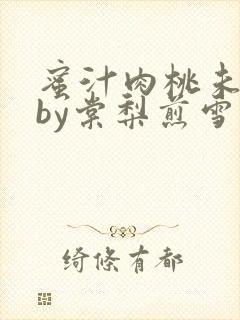 蜜汁肉桃未
by棠梨煎雪
绮俢有都